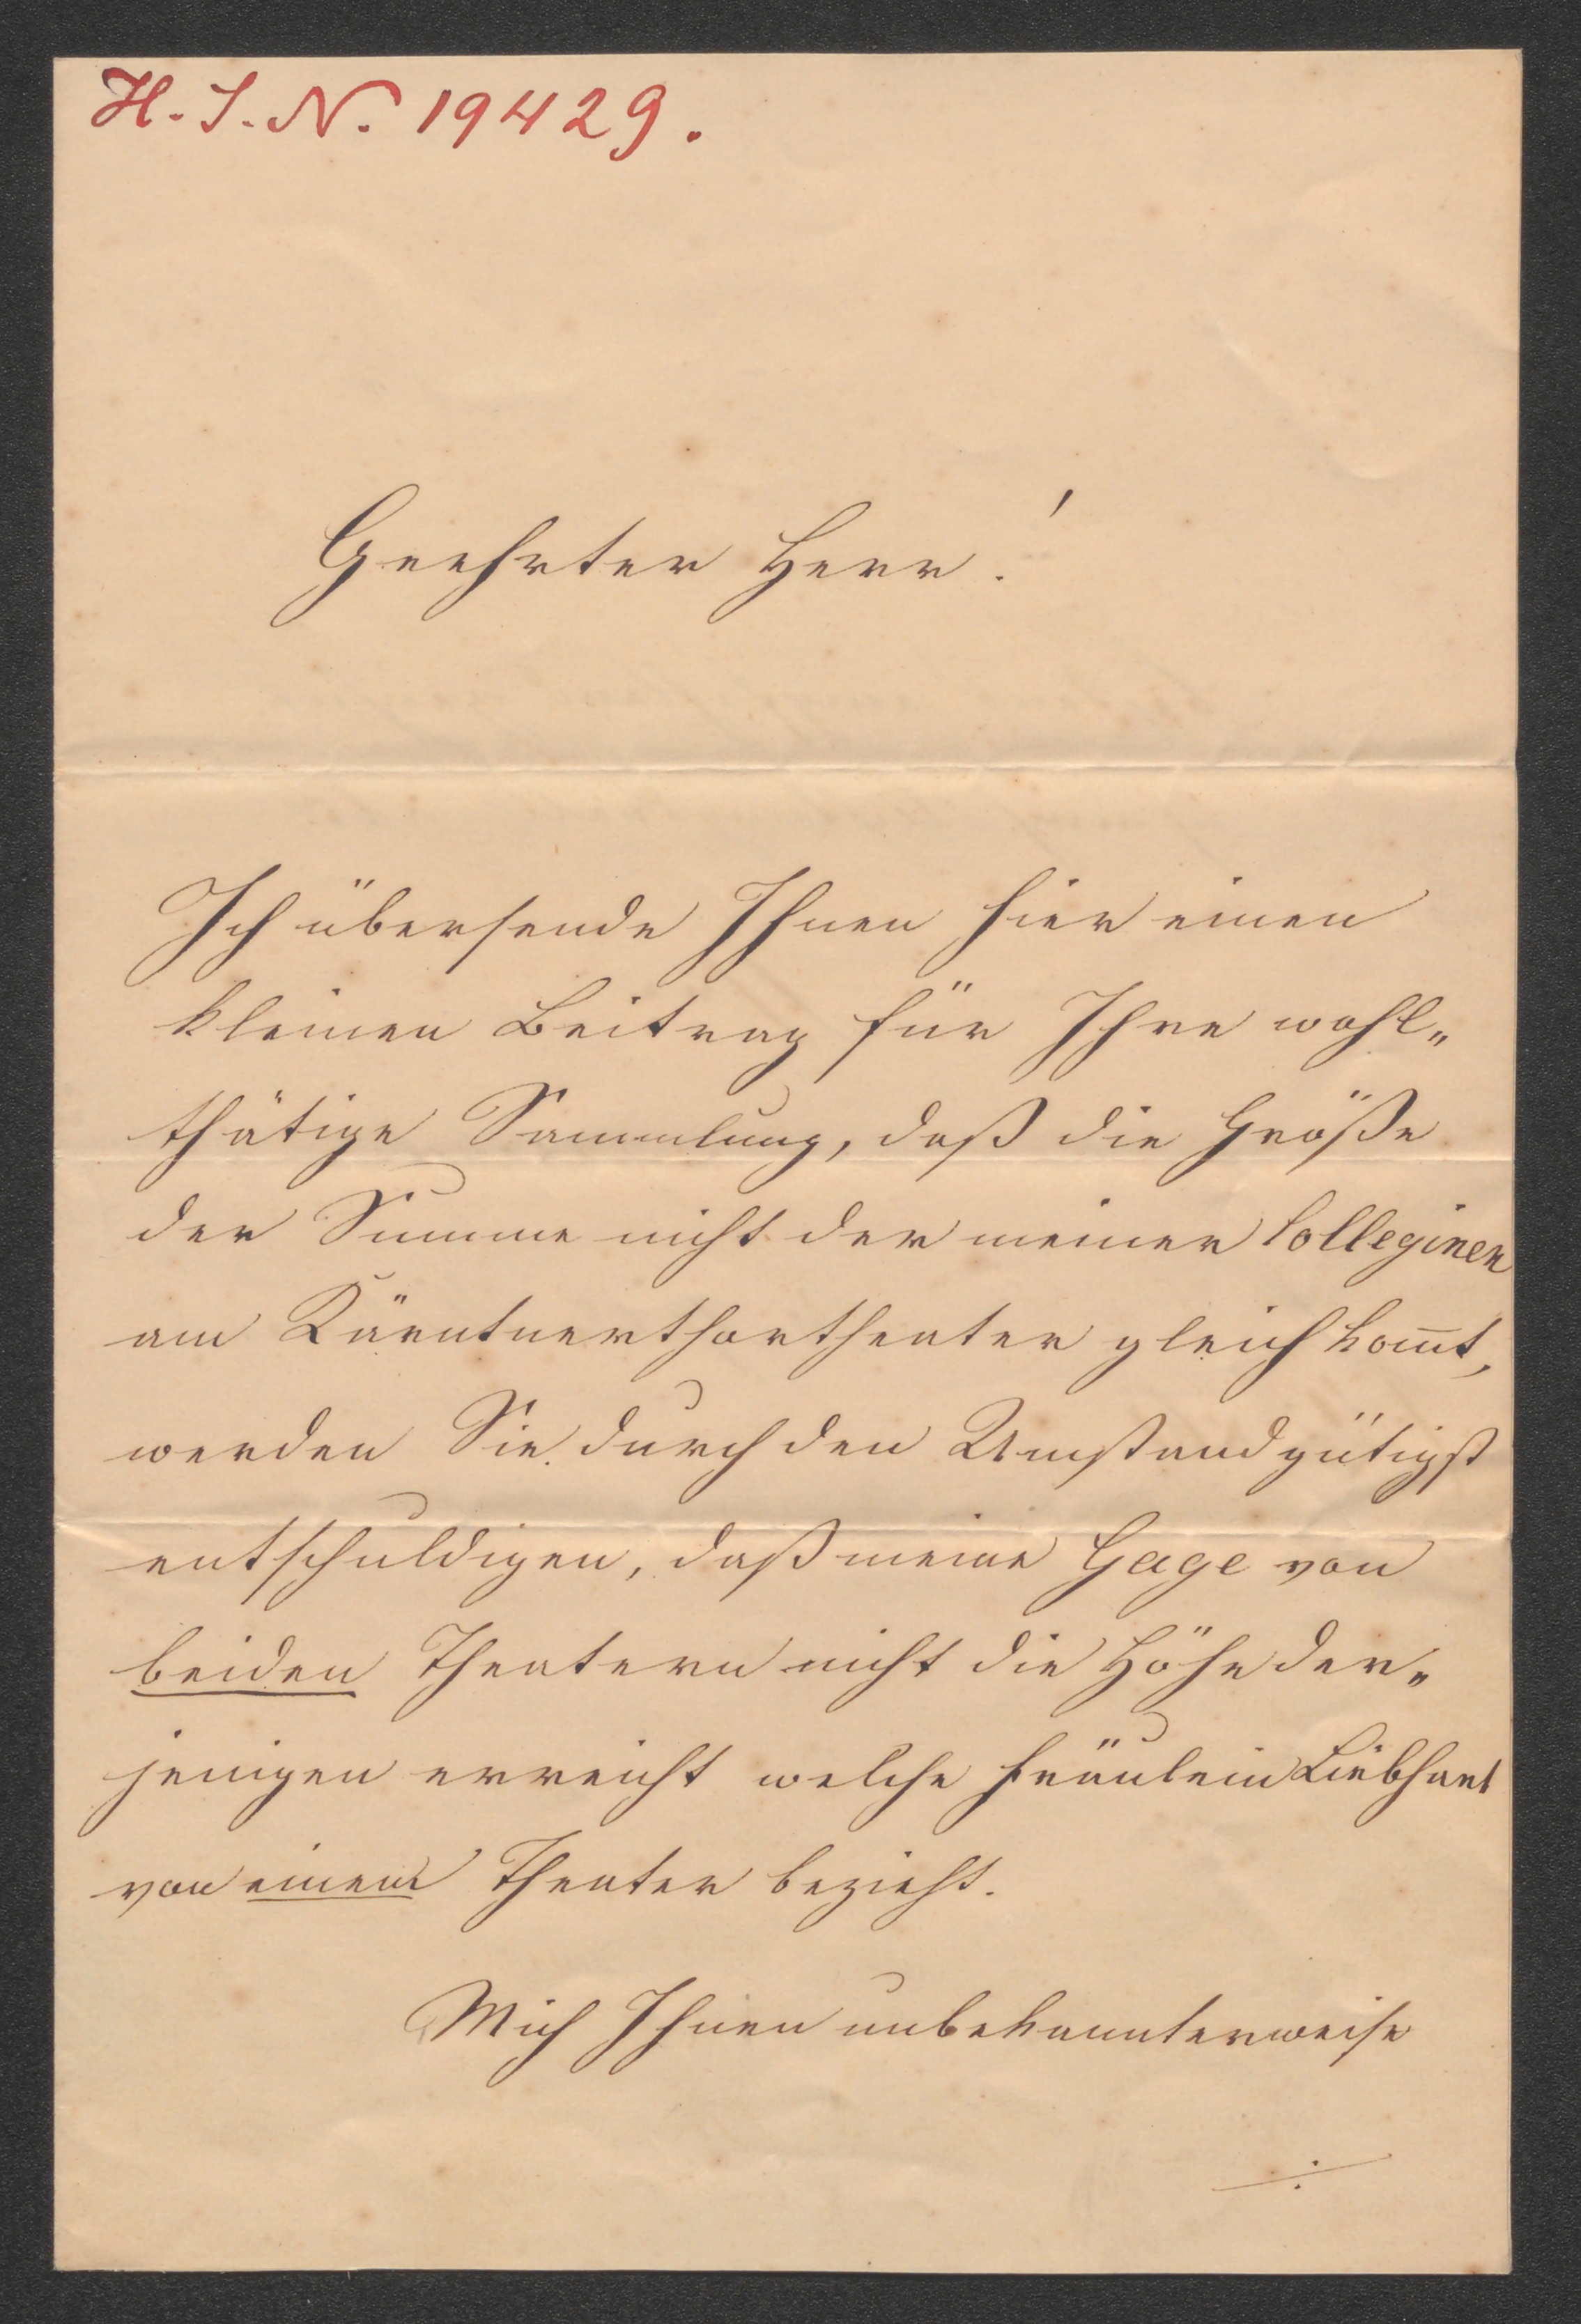 H. I. N. 19429.
Geehrter Herr!
Ich übersende Ihnen hier einen
kleinen Beitrag für Ihre wohl„
thätige Sammlung, daß die Größe
der Summe nicht der meiner Colleginen
am Kärntnerthortheater gleich kom̅t,
werden Sie durch den Umstand gütigst
entschuldigen, daß meine Gage von
beiden Theatern nicht die Höhe der„
jenigen erreicht welche Fräulein Liebhart
von einem Theater bezieht.
Mich Ihnen unbekannterweise
./.